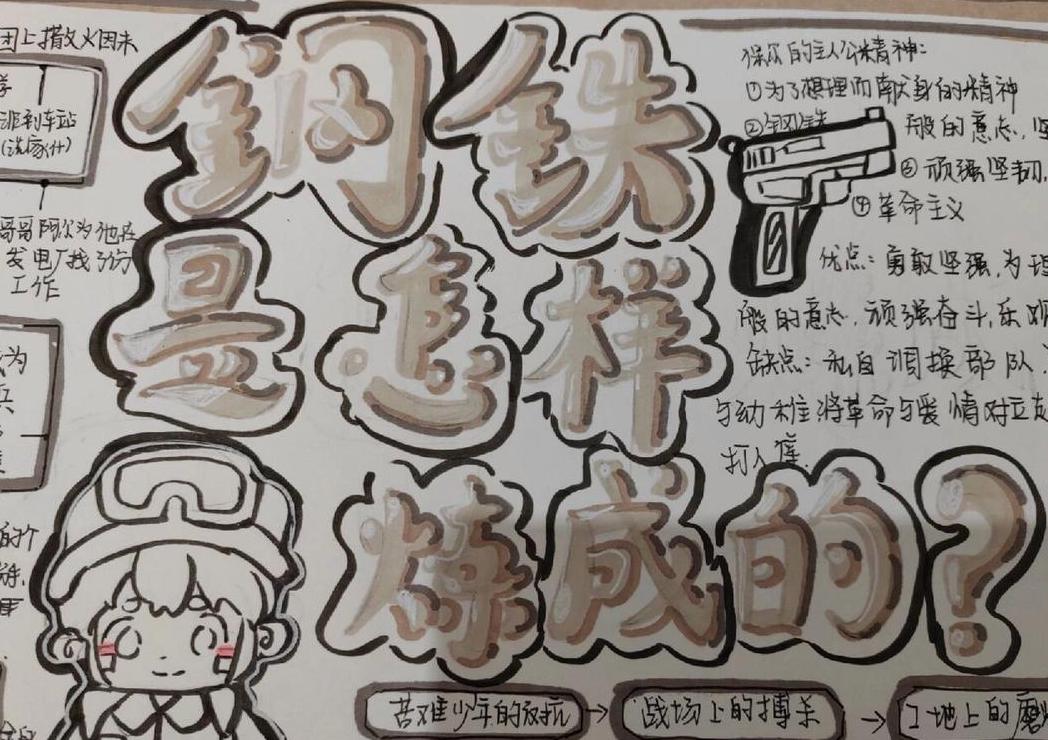 团上撒义因未
学
派利车站
(洗家什)
哥哥阿尔为他在
发电厂找了份
工作
为
兵
的个
钢铁
是怎样
炼成的?
保尔的主人公精神:
①为了理想而献身的精神
②钢铁般的意志,坚
③顽强坚韧,
④革命主义
优点:勇敢坚强,为
般的意志,顽强奋斗,乐
缺点:私自调换部队,
与动 将革命与爱情对立
打人
苦难少年的反抗→战场上的搏杀→工地上的磨